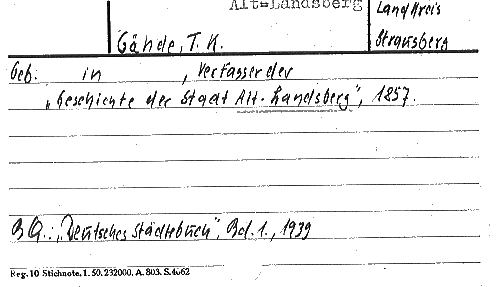 Alt-Landsberg
Landkreis
Strausberg
Gände, T. K.
Geb. in , Verfasser der
„Geschichte der Stadt Alt-Landsberg", 1857.
B Q.: „Deutsches Städtebuch", Bd. 1., 1939
Reg. 10 Stichnote. 1. 50. 232000. A. 803. S. 4062